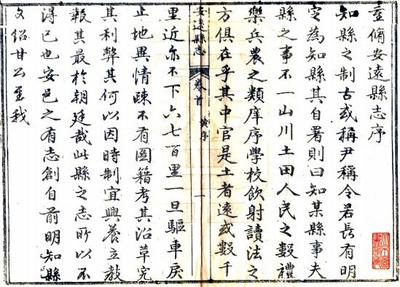 重脩安遠縣志序
知縣之制古或稱尹稱令若長有明
定為知縣其自署則曰知某縣事夫
縣之事不一山川土田人民之數禮
樂兵農之類庠序學校飲射讀法之
方俱在乎其中官是土者遠或數千
安遠縣志 卷首 序 一
里近亦不下六七百里一旦驅車戾
止地異情疎不有圖籍考其沿革究
其利弊其何以因時制宜興養立教
報其最於朝廷哉此縣之志所以不
得已也安邑之有志創自前明知縣
文紹甘公至我